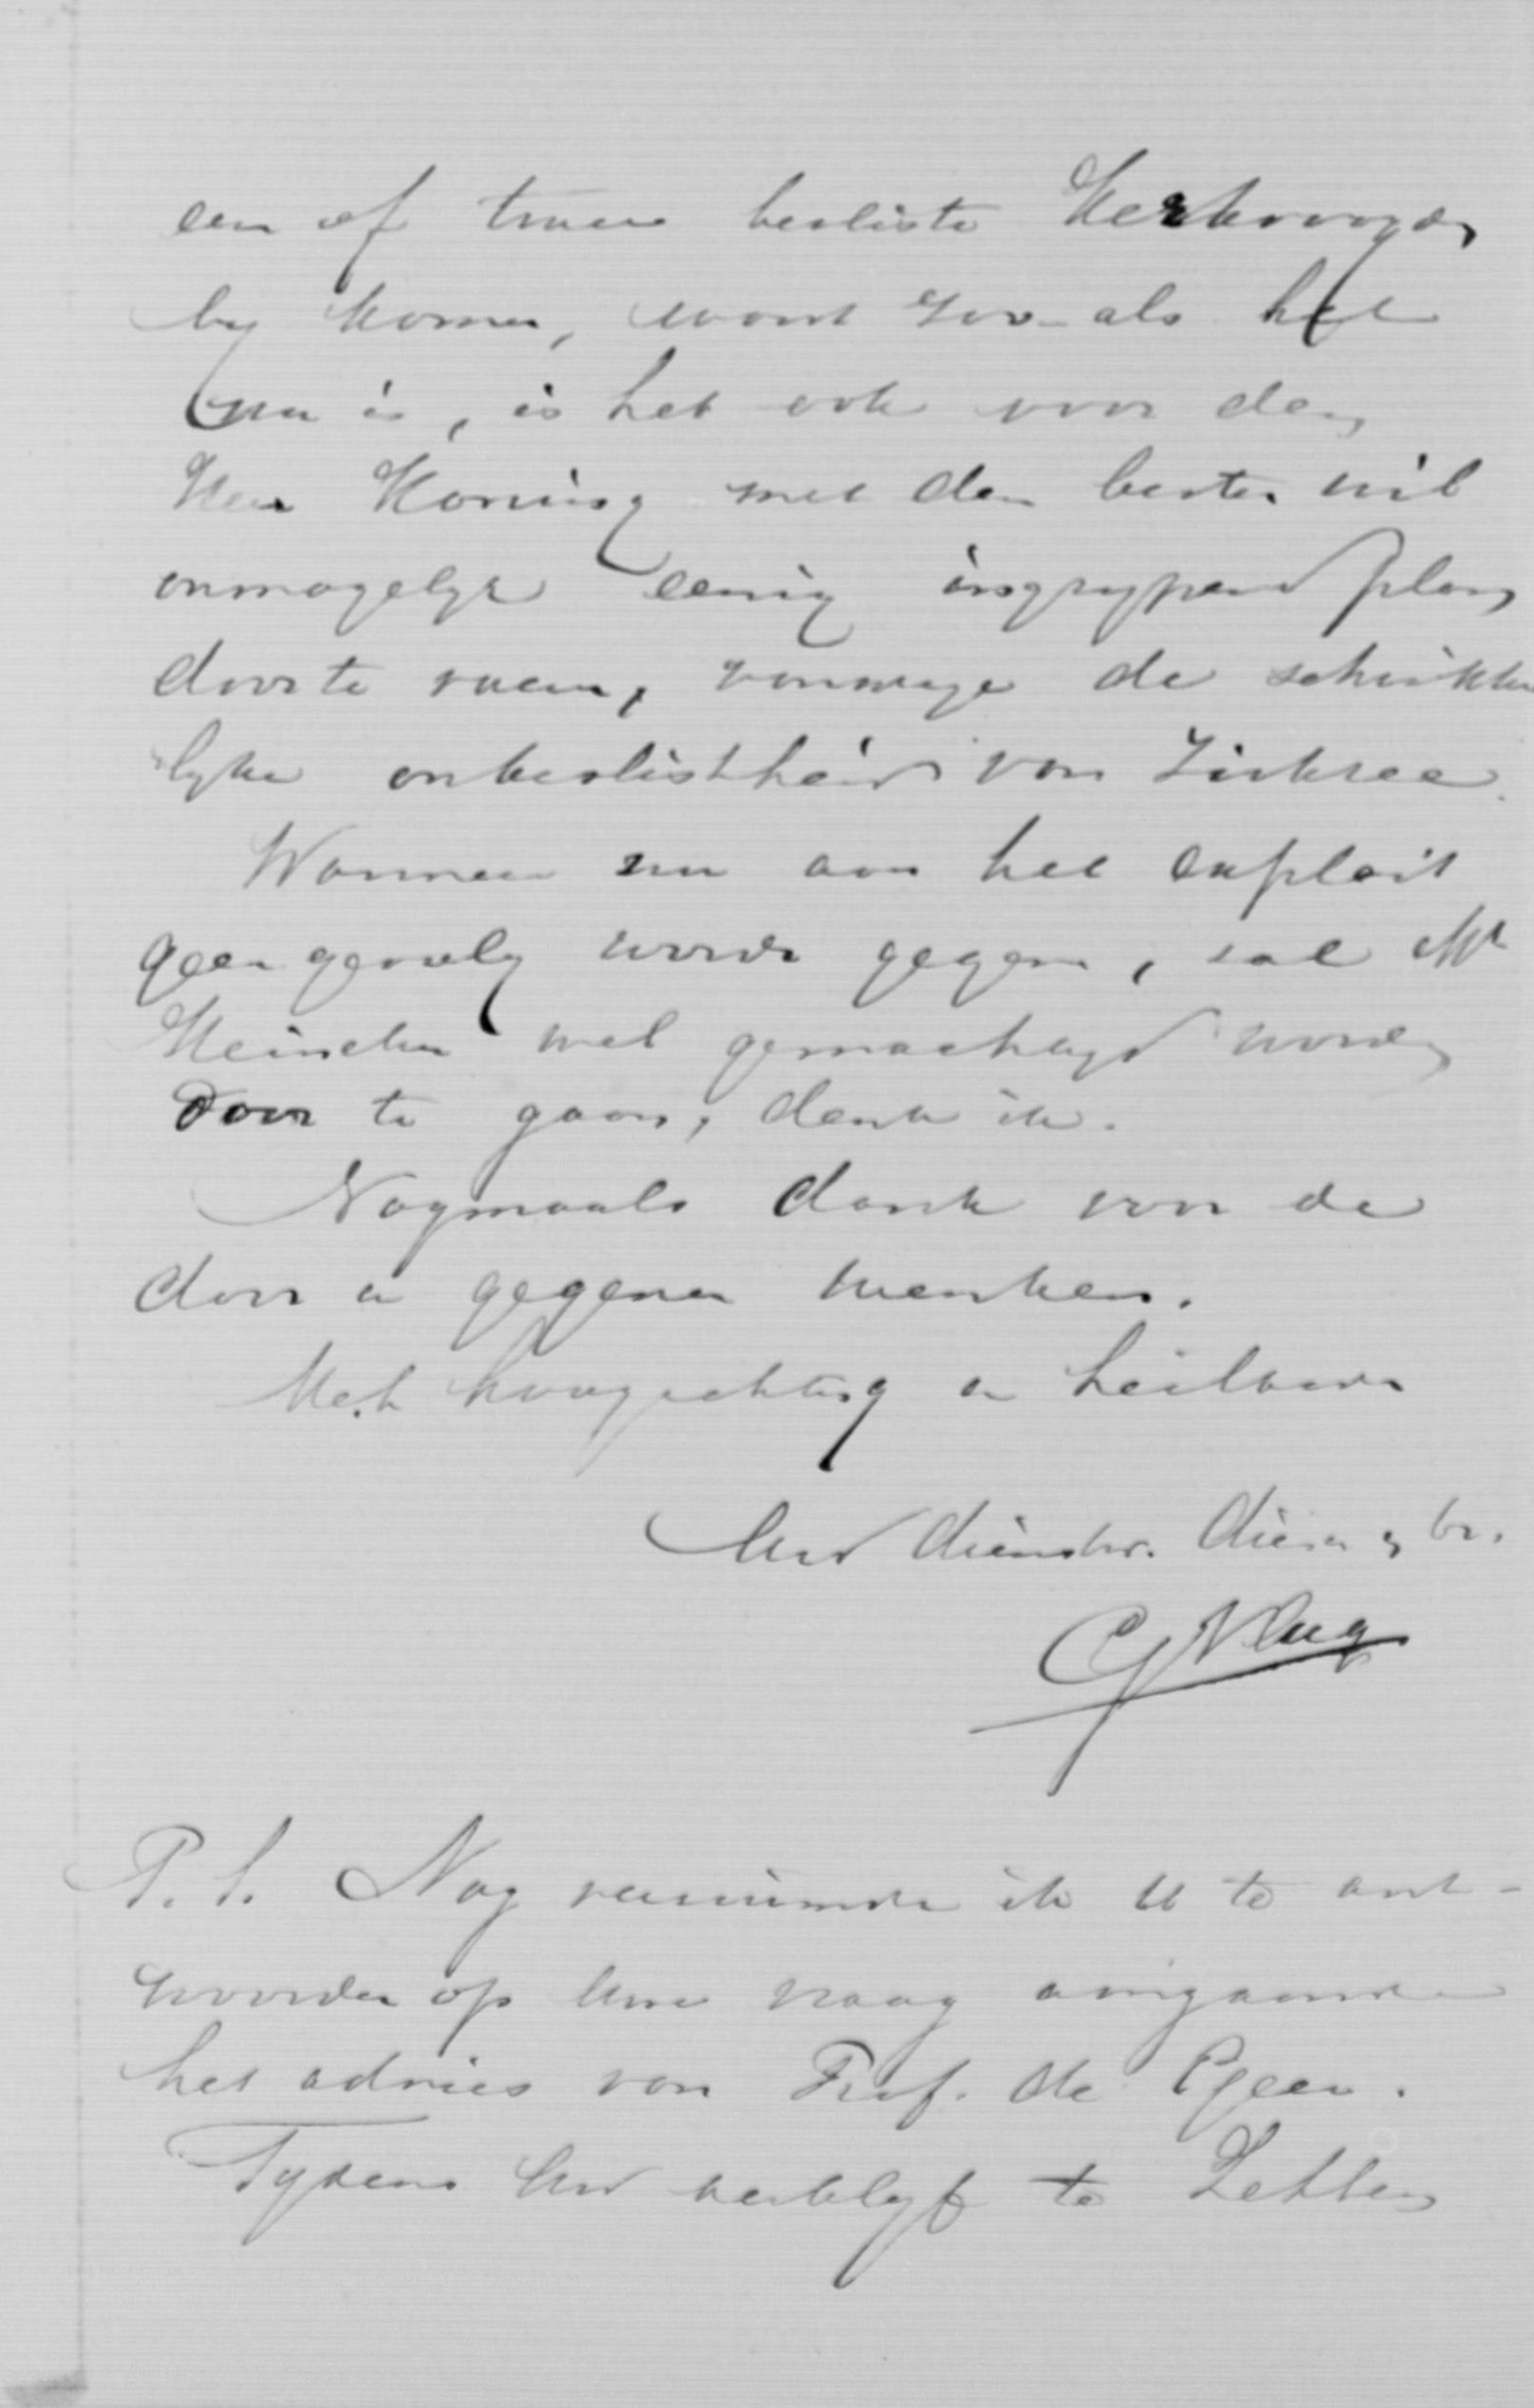 een of twee besliste Kerkvoogden
by komen, want zoo als het
nu is, is het ook voor den
Heer Koning met den besten wil
onmogelyk eenig ingrypend plan
door te voeren, vanwege de schrikke
lyke onbeslistheid van Zirksee.
Wanneer nu aan het exploit
geen gevolg wordt gegeven, zal Mr
Heineken wel gemachtigd worden
door te gaan, denk ik.
Nogmaals dank voor de
door u gegeven wenken.
Met hoogachting en heilbede
Uw dienstw. dienr. & br.
C Vlug
P.S. Nog verzuimde ik U te ant-
woorden op Uwe vraag aangaande
het advies van Prof. de Geer.
Tydens Uw verblyf te Zetten